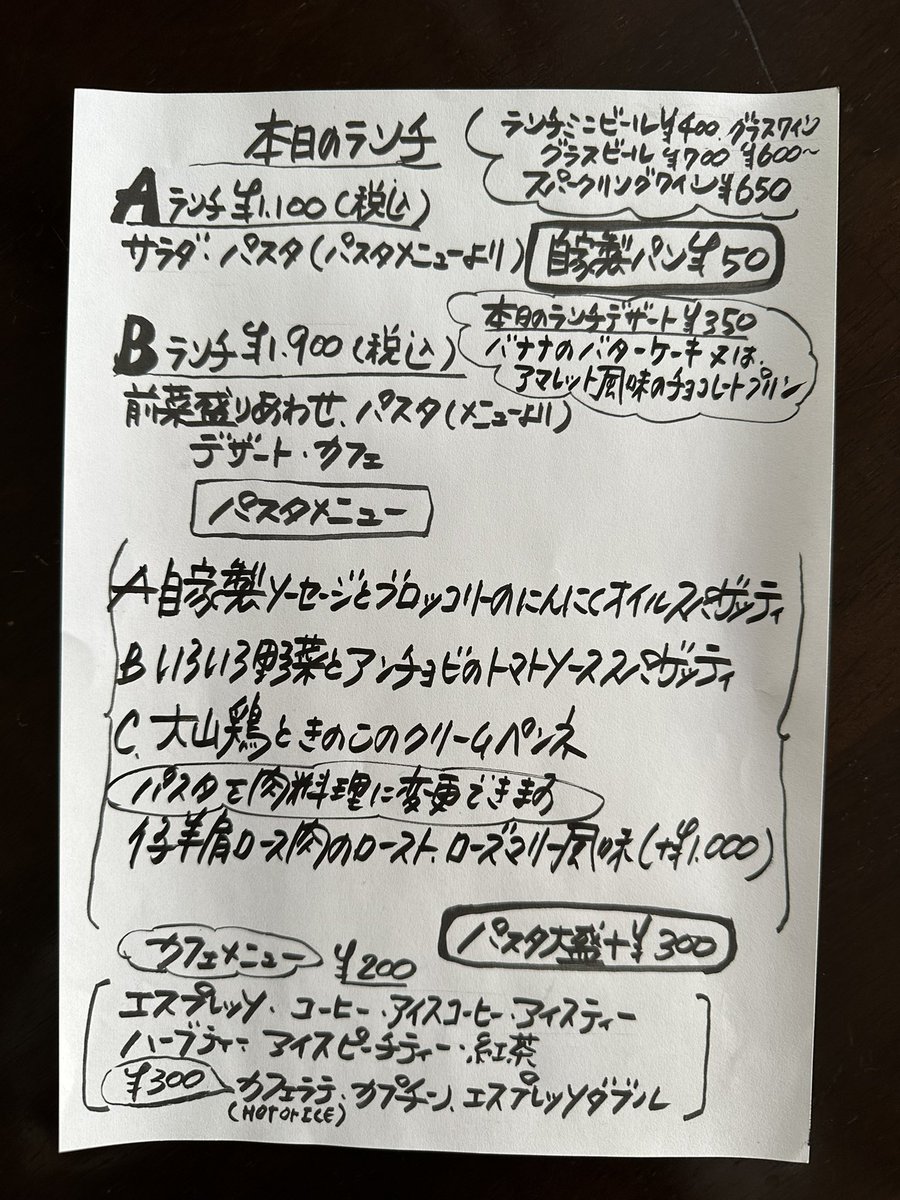 本日のランチ
ランチミニビール¥400. グラスワイン
グラスビール ¥700 ¥600〜
スパークリングワイン¥650
Aランチ¥1.100(税込)
サラダ・パスタ(パスタメニューより)
自家製パン¥50
Bランチ¥1.900(税込)
本日のランチデザート¥350
バナナのバターケーキ又は、
アマレット風味のチョコレートプリン
前菜盛りあわせ、パスタ(メニューより)
デザート・カフェ
パスタメニュー
A自家製ソーセージとブロッコリーのにんにくオイルスパゲッティ
Bいろいろ野菜とアンチョビのトマトソーススパゲッティ
C.大山鶏ときのこのクリームペンネ
パスタを肉料理に変更できます
仔羊肩ロース肉のロースト、ローズマリー風味(+¥1.000)
パスタ大盛+¥300
カフェメニュー ¥200
エスプレッソ・コーヒー・アイスコーヒー・アイスティー
ハーブティー アイスピーチティー・紅茶
¥300 カフェラテ、カプチーノ、エスプレッソダブル
(HOT or ICE)